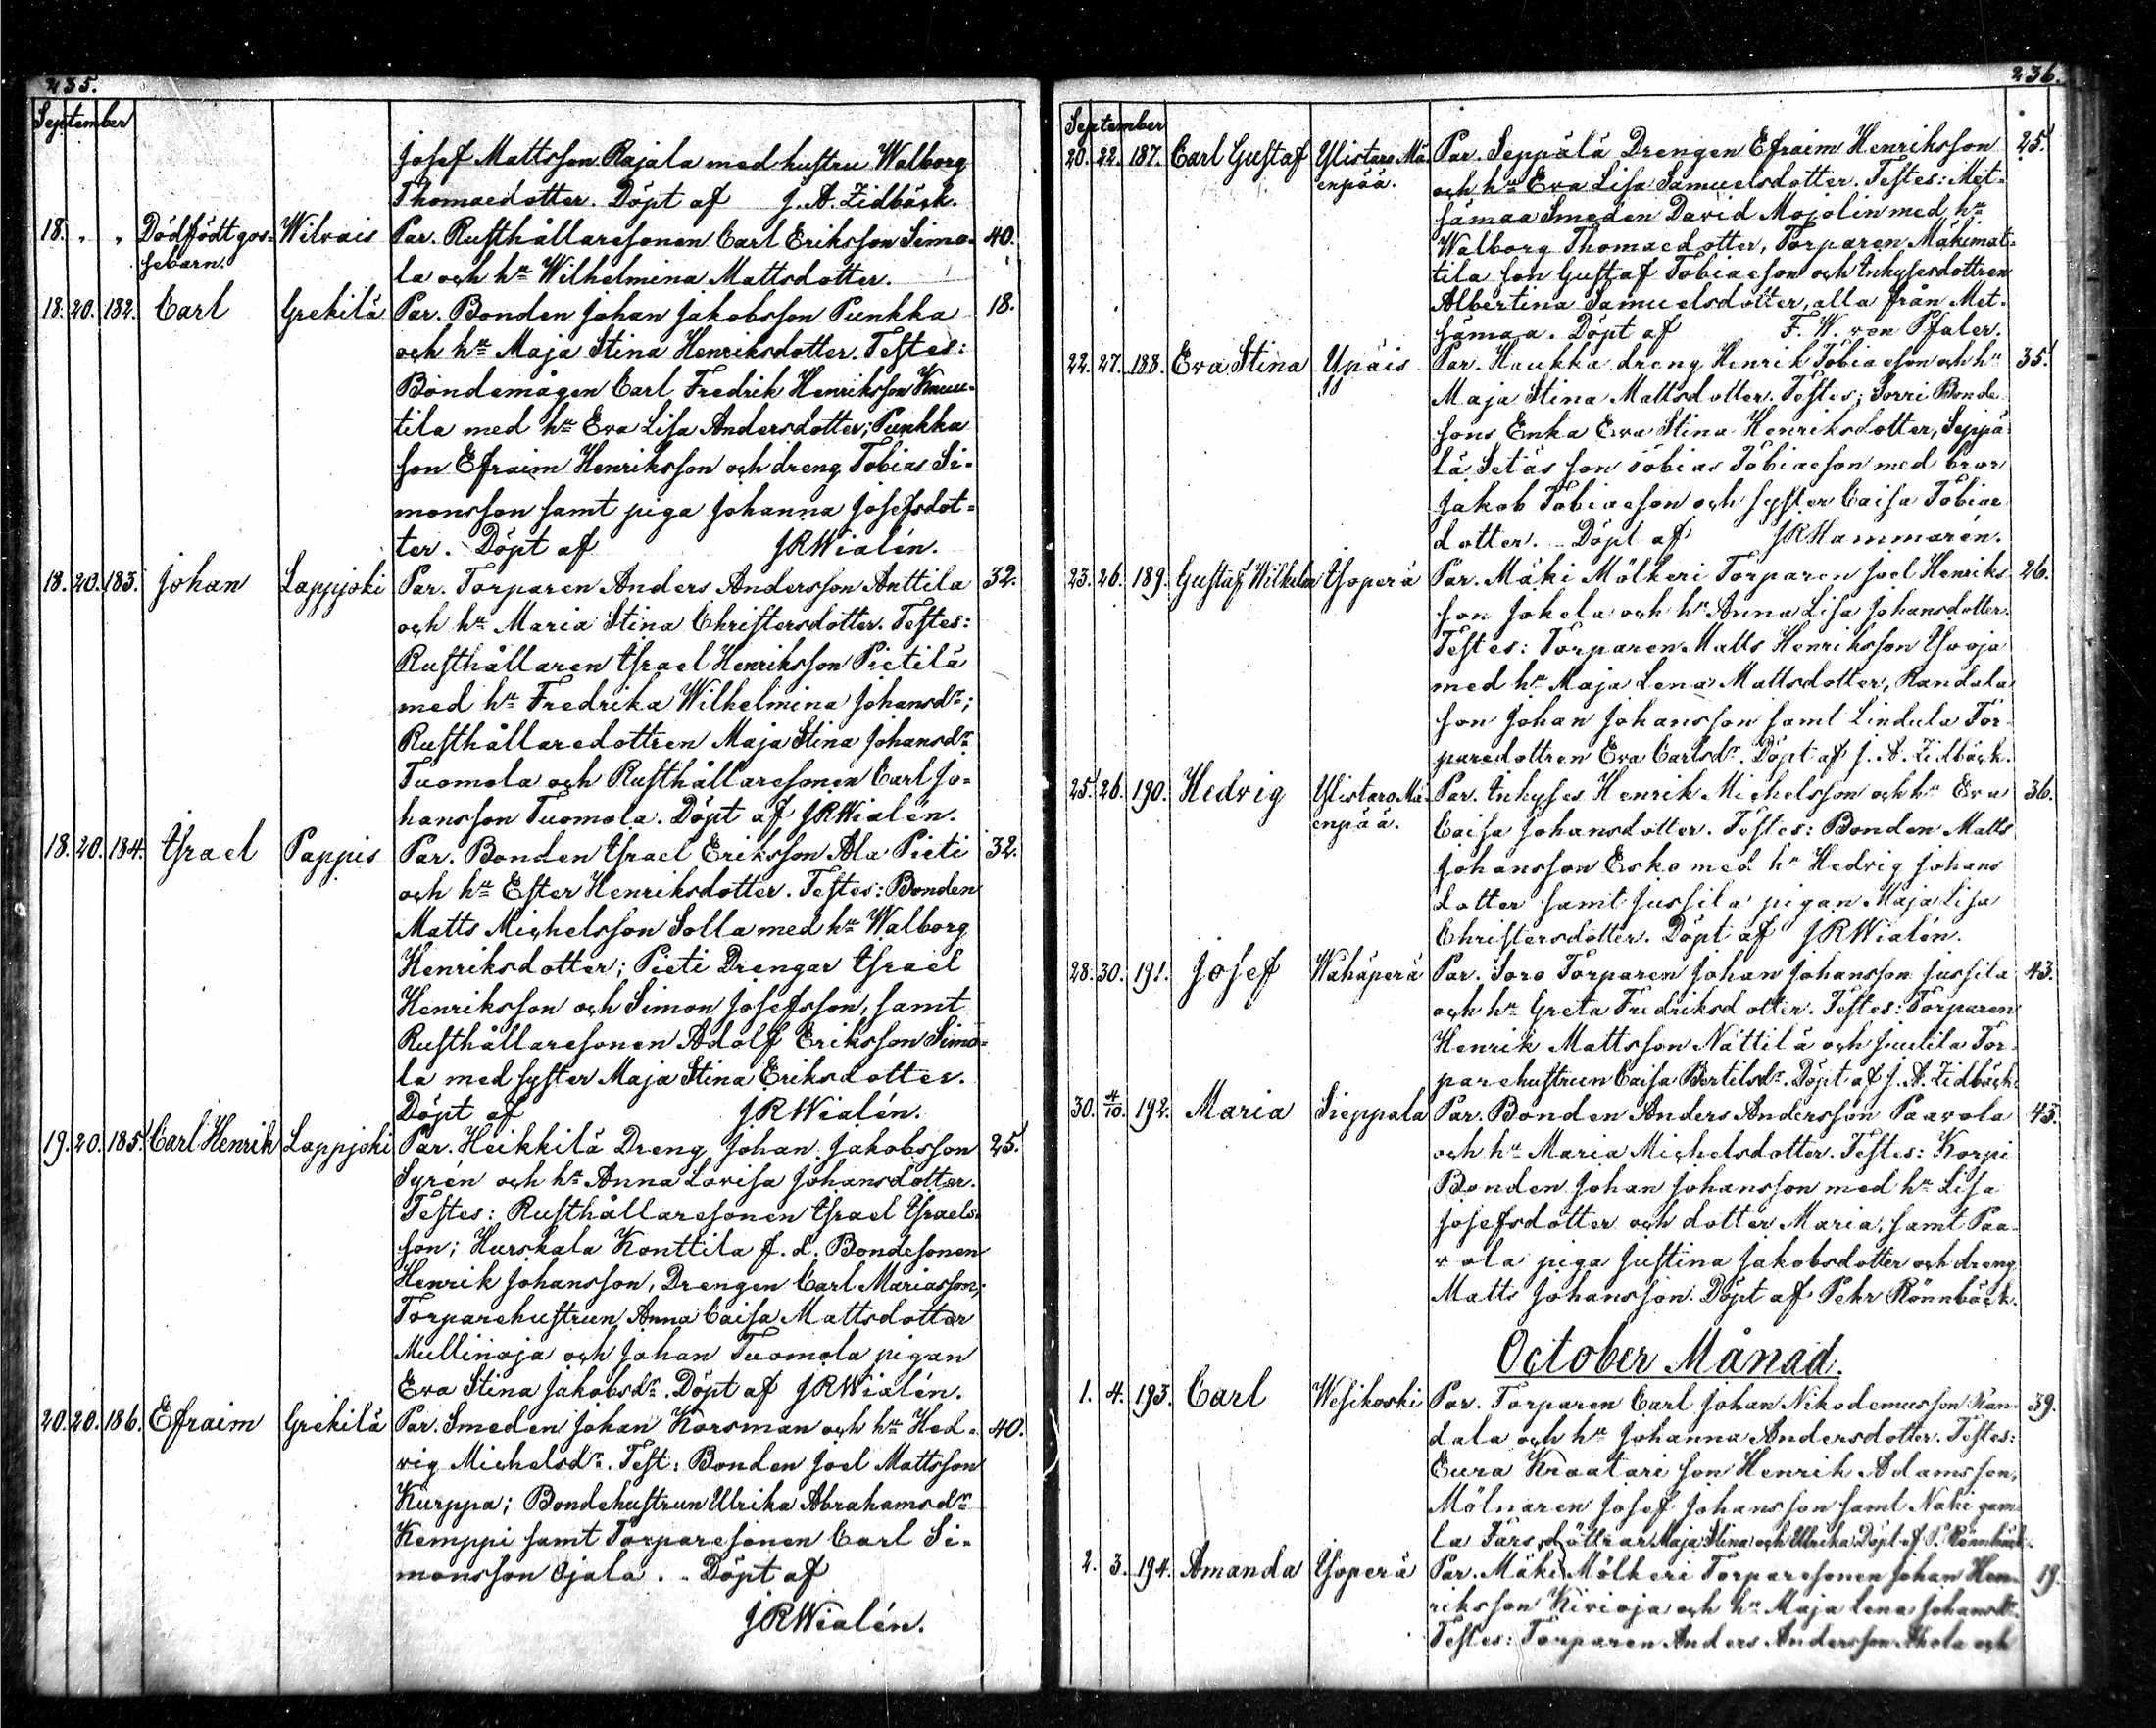 235.
September
Josef Mattsson Rajala med hustru Walborg
Thomaedotter. Döpt af J. A. Zidbäck.
18. " " Dödfödt gos- Wilvais Par. Rusthållaresonen Carl Eriksson Simo- 40.
sebarn. la och hu Wilhelmina Mattsdotter.
18. 20. 182. Carl Grekilä Par. Bonden Johan Jakobsson Punkka 18.
och hu Maja Stina Henriksdotter. Testes:
Bondemågen Carl Fredrik Henriksson Knuu-
tila med hu Eva Lisa Andersdotter; Punkka
son Efraim Henriksson och dreng Tobias Si-
monsson samt piga Johanna Josefsdot-
ter. Döpt af JRWialén.
18. 20. 183. Johan Lappjoki Par. Torparen Anders Andersson Anttila 32.
och hu Maria Stina Christersdotter. Testes:
Rusthållaren Israel Henriksson Pietilä
med hu Fredrika Wilhelmina Johansdr;
Rusthållaredottren Maja Stina Johansdr
Tuomola och Rusthållaresonen Carl Jo-
hansson Tuomola. Döpt af JRWialén.
18. 20. 184. Israel Pappis Par. Bonden Israel Eriksson Ala Pieti 32.
och hu Ester Henriksdotter. Testes: Bonden
Matts Michelsson Solla med hu Walborg
Henriksdotter; Pieti Drengar Israel
Henriksson och Simon Josefsson, samt
Rusthållaresonen Adolf Eriksson Simo-
la med syster Maja Stina Eriksdotter.
Döpt af JRWialén.
19. 20. 185. Carl Henrik Lappjoki Par. Heikkilä Dreng Johan Jakobsson 25.
Syrén och hu Anna Lovisa Johansdotter.
Testes: Rusthållaresonen Israel Israels-
son; Hurskala Konttila f. d. Bondesonen
Henrik Johansson, Drengen Carl Mariasson;
Torparehustrun Anna Caisa Mattsdotter
Mullinoja och Johan Tuomola pigan
Eva Stina Jakobsdr. Döpt af JRWialén.
20. 20. 186. Efraim Grekilä Par. Smeden Johan Korsman och hu Hed- 40.
vig Michelsdr. Test: Bonden Joel Mattsson
Kurppa; Bondehustrun Ulrika Abrahamsdr
Kemppi samt Torparesonen Carl Si-
monsson Ojala. Döpt af
JRWialén.
236.
September
20. 22. 187. Carl Gustaf Ylistaro Mä- Par. Seppälä Drengen Efraim Henriksson 25.
enpää. och hu Eva Lisa Samuelsdotter. Testes: Met-
sämaa Smeden David Mojolin med hu
Walborg Thomaedotter, Torparen Mäkimat-
tila son Gustaf Tobiaeson och Inhysesdottren
Albertina Samuelsdotter, alla från Met-
sämaa. Döpt af F. W. von Pfaler.
22. 27. 188. Eva Stina Ypäis Par. Haukka dreng Henrik Tobiaeson och hu 35.
Maja Stina Mattsdotter. Testes: Sorri Bonde
sons Enka Eva Stina Henriksdotter, Seppä
lä Setäs son Tobias Tobiaeson med bror
Jakob Tobiaeson och syster Caisa Tobiae
dotter. Döpt af JRHammarén.
23. 26. 189. Gustaf Wilhelm Isoperä Par. Mäki Mölkeri Torparen Joel Henriks 26.
son Jokela och hu Anna Lisa Johansdotter.
Testes: Torparen Matts Henriksson Isooja
med hu Maja Lena Mattsdotter, Randala
son Johan Johansson samt Lindula Tor-
paredottren Eva Carlsdr. Döpt af J. A. Zidbäck.
25. 26. 190. Hedvig Ylistaro Mä- Par. Inhyses Henrik Michelsson och hu Eva 36.
enpää. Caisa Johansdotter. Testes: Bonden Matts
Johansson Esko med hu Hedvig Johans
dotter samt Jussila pigan Maja Lisa
Christersdotter. Döpt af JRWialén.
28. 30. 191. Josef Wahäperä Par. Soro Torparen Johan Johansson Jussila 43.
och hu Greta Fredriksdotter. Testes: Torparen
Henrik Mattsson Nättilä och Juutila Tor-
parehustrun Caisa Bertilsdr. Döpt af J. A. Zidbäck.
30. 4/10. 192. Maria Sieppala Par. Bonden Anders Andersson Paavola 45.
och hu Maria Michelsdotter. Testes: Korpi
Bonden Johan Johansson med hu Lisa
Josefsdotter och dotter Maria, samt Paa-
vola piga Justina Jakobsdotter och dreng
Matts Johansson. Döpt af Pehr Rönnbäck.
October Månad.
1. 4. 193. Carl Wesikoski Par. Torparen Carl Johan Nikodemusson Ran- 39.
dala och hu Johanna Andersdotter. Testes:
Eura Kraatari son Henrik Adamsson,
Mölnaren Josef Johansson samt Naki gam-
la Fars döttrar Maja Stina och Ulrika. Döpt af P. Rönnbäck.
2. 3. 194. Amanda Isoperä Par. Mäki Mölkeri Torparesonen Johan Hen- 19.
riksson Kivioja och hu Maja Lena Johansdr.
Testes: Torparen Anders Andersson Ahola och